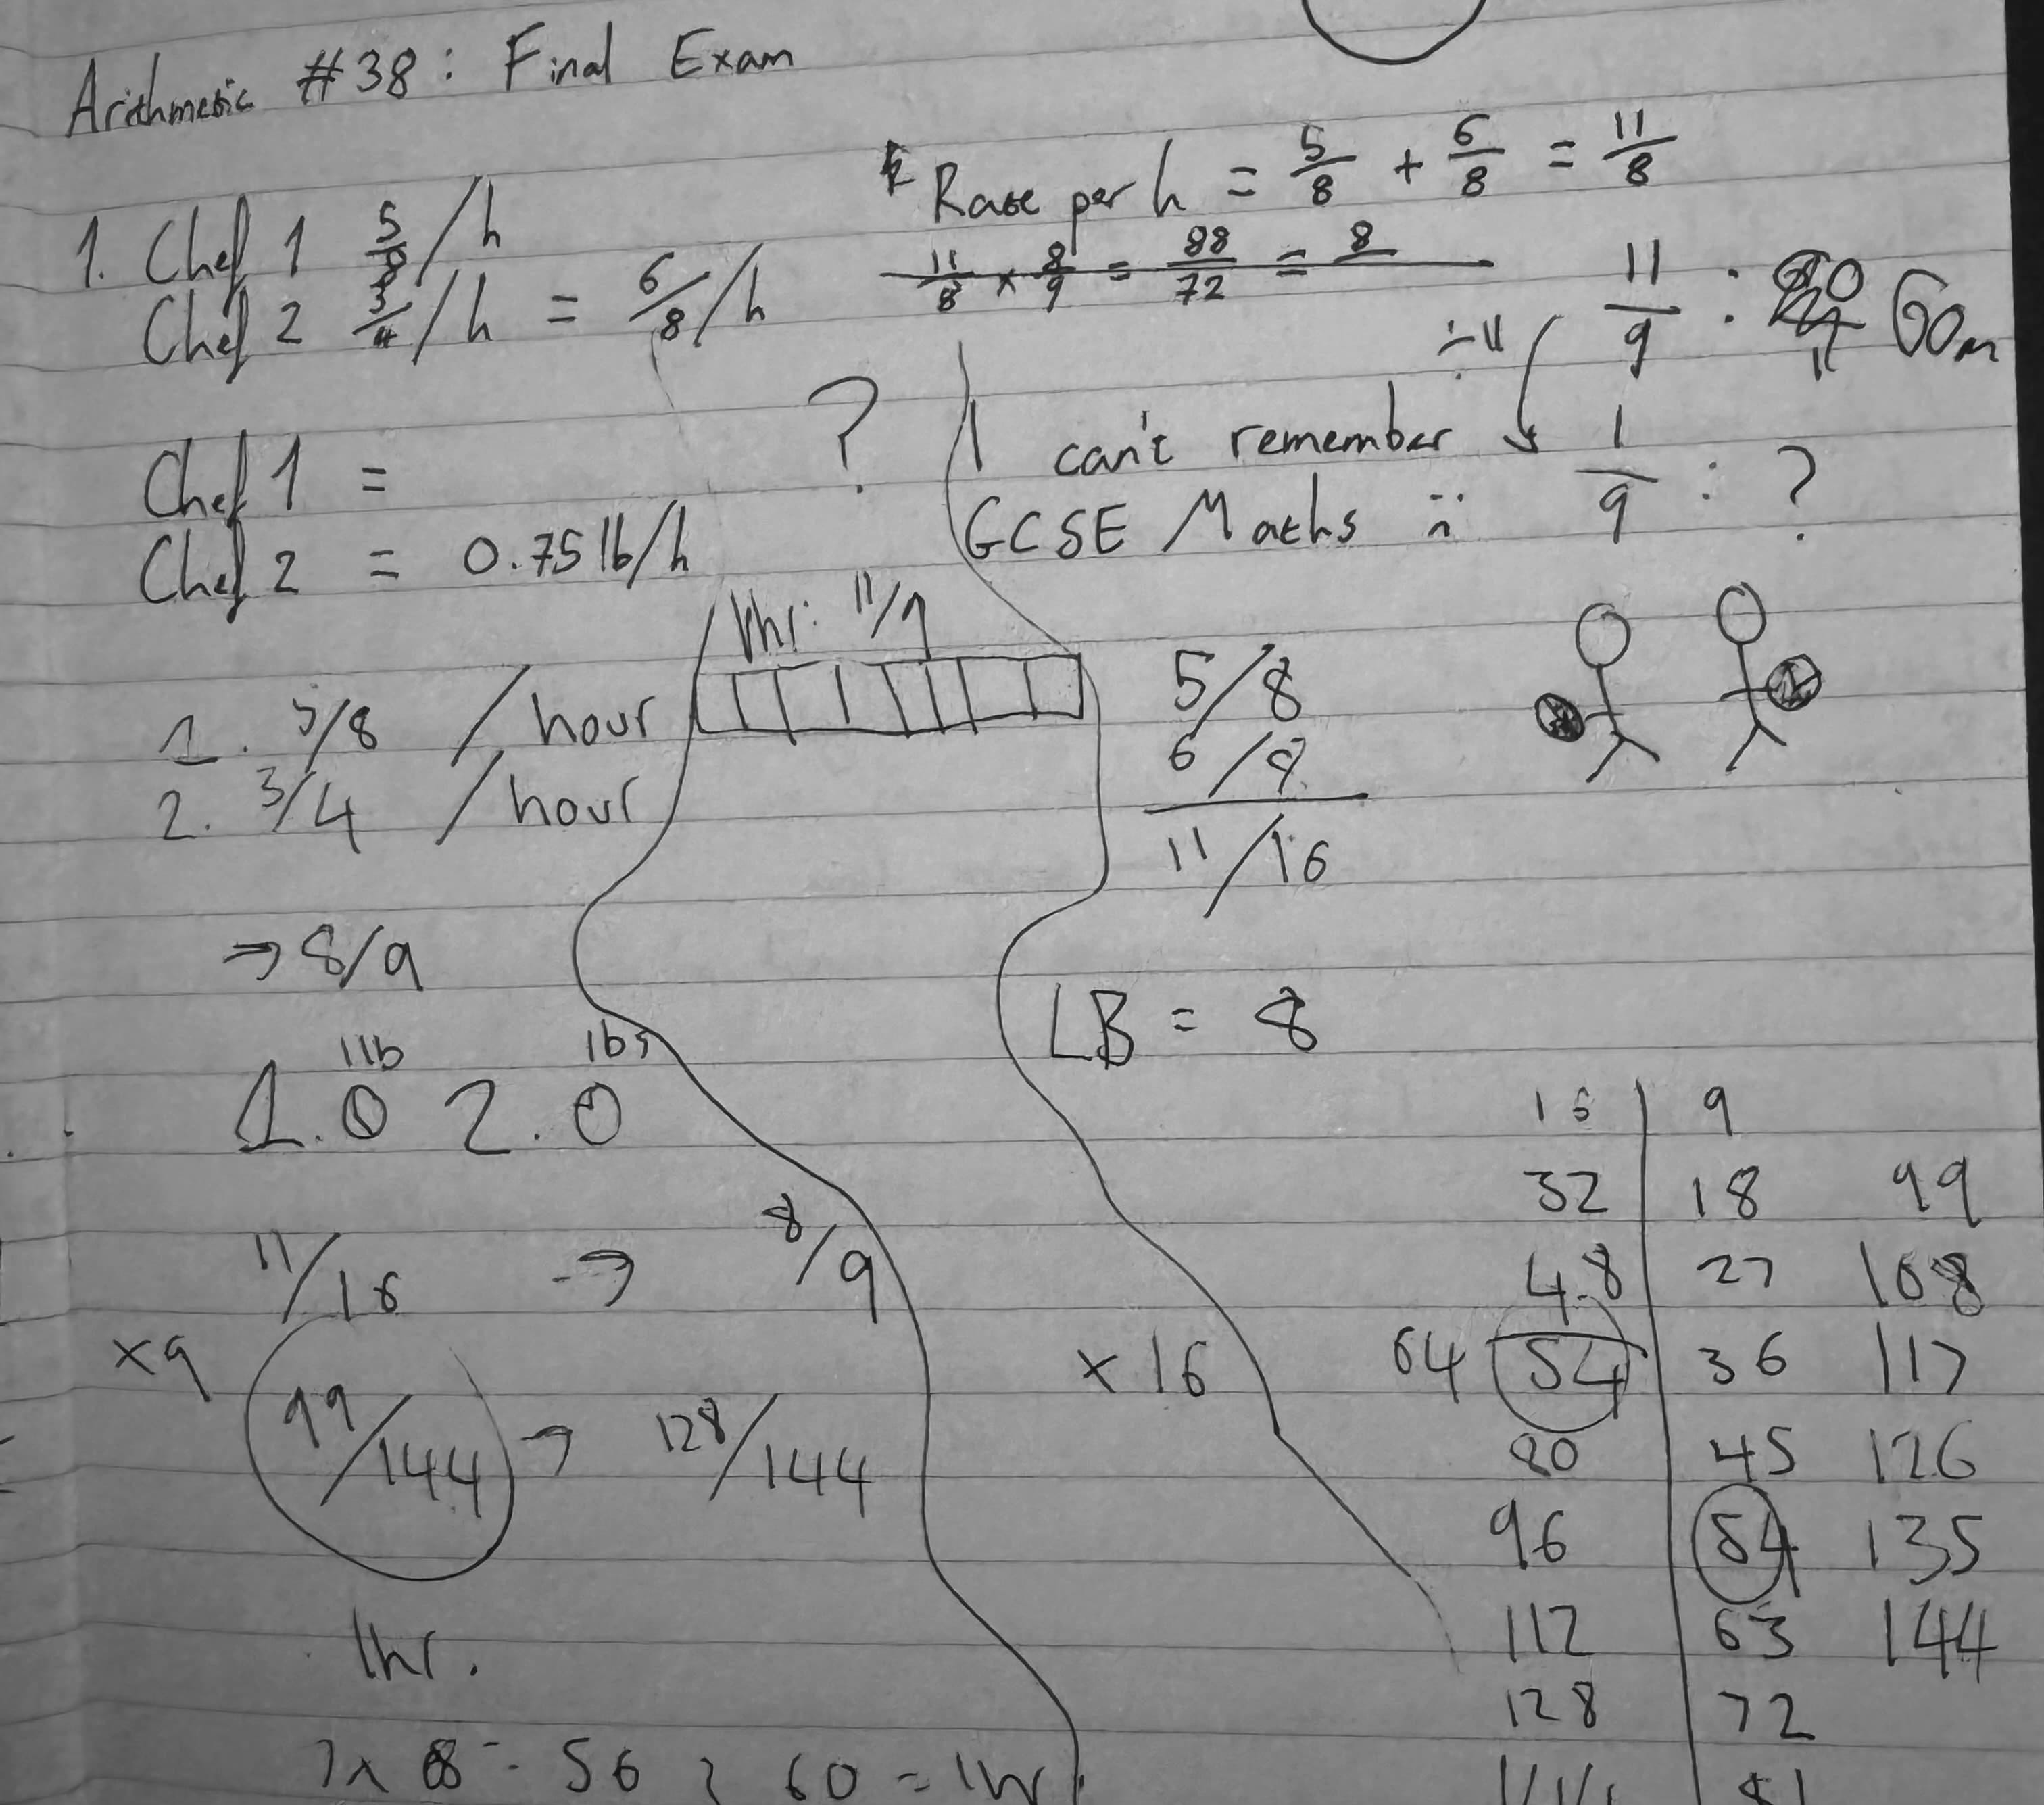 Arithmetic #38: Final Exam
1. Chef 1 5/8 /h
Chef 2 3/4 /h = 6/8 /h
Rate per h = 5/8 + 6/8 = 11/8
11/8 × 8/9 = 88/72 = 8
÷11
11/9 : 60m
1/9 : ?
Chef 1 = ?
Chef 2 = 0.75lb/h
I can't remember
GCSE Maths
1hr: 11/9
1. 5/8 /hour
2. 3/4 /hour
5/8
6/8
11/16
→ 8/9
LB = 8
1lb lbs
1. 0 2. 0
11/16 → 8/9
×9 ×16
99/144 → 128/144
1hr.
7 × 8 = 56 60 = 1hr
16 9
32 18 99
48 27 108
64 54 36 117
80 45 126
96 54 135
112 63 144
128 72
81